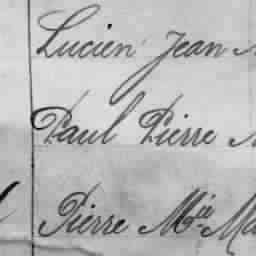 Lucien Jean
Paul Pierre
Pierre Mie Ma